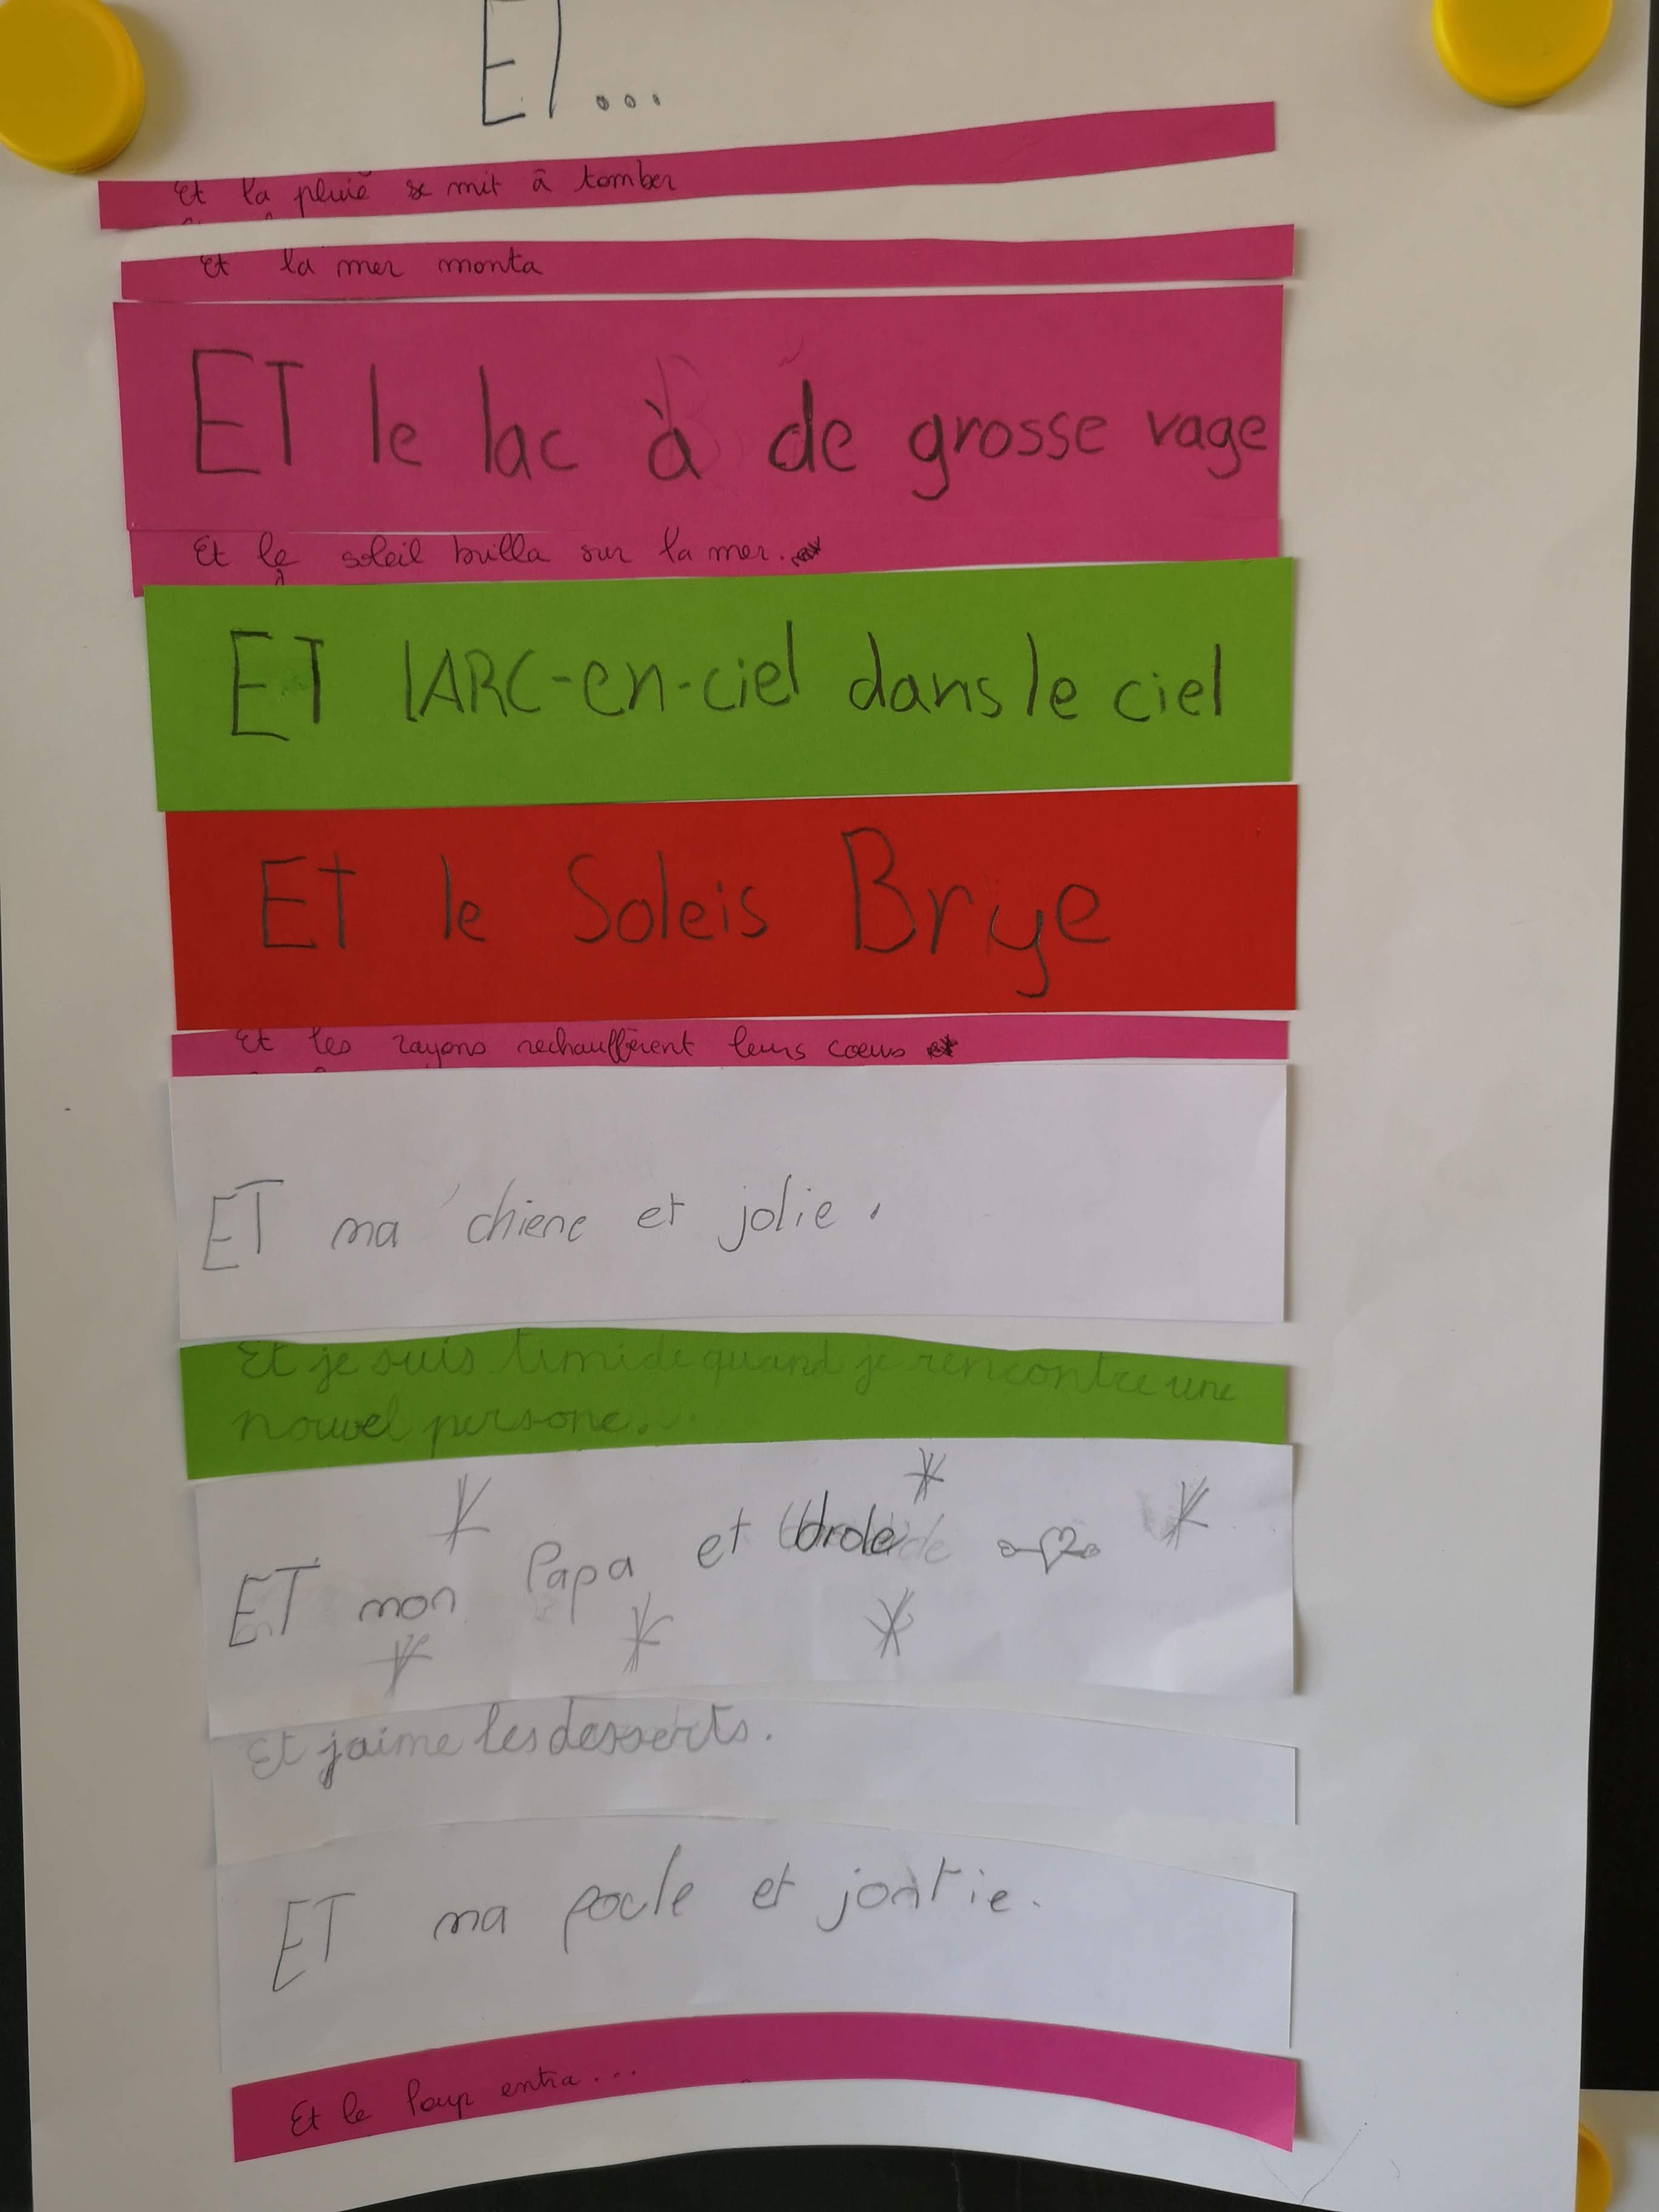 ET...
Et la pluie se mit à tomber
Et la mer monta
ET le lac à de grosse vage
Et le soleil brilla sur la mer.
ET lARC-en-ciel dans le ciel
ET le Soleis Brye
Et les rayons rechauffèrent leurs coeurs
ET ma chiene et jolie.
Et je suis timide quand je rencontre une
nouvel persone.
ET mon Papa et drole
Et jaime les desserts.
ET ma poule et jontie.
Et le loup entra...